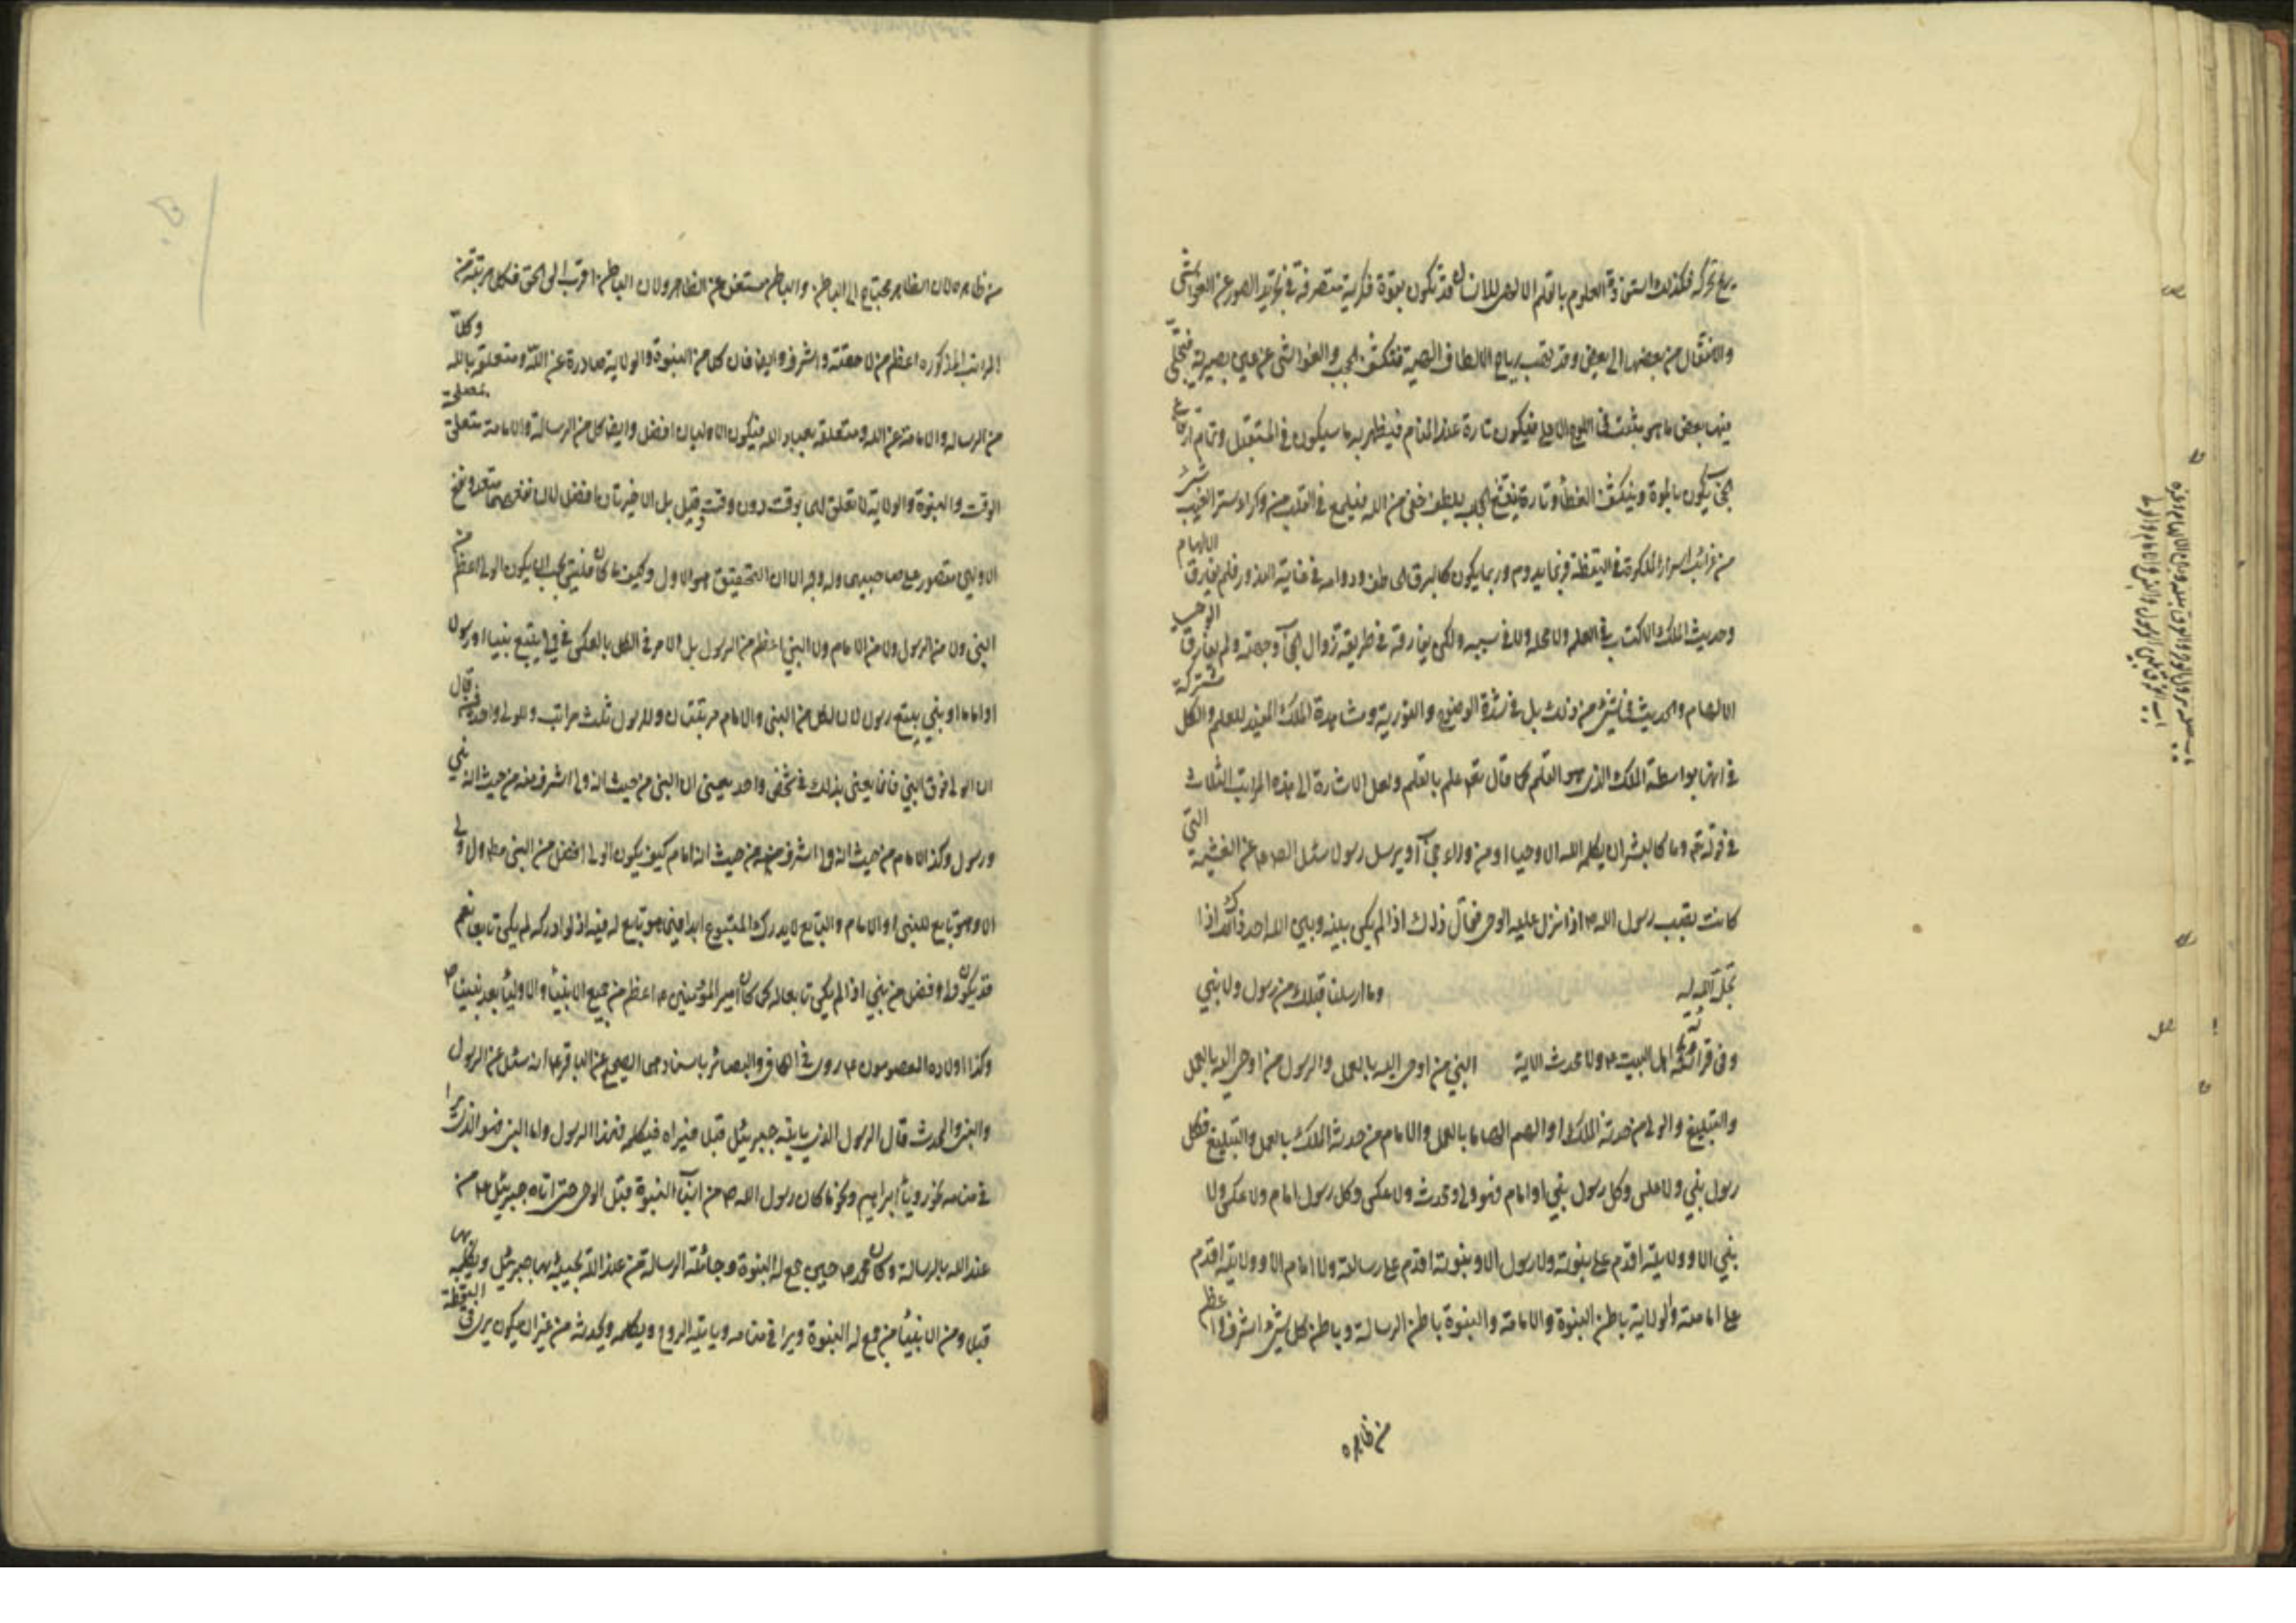 يع تحركه فكذلك استفادة العلوم بالقلم الالهى للانسان قد تكون بقوة فكرية متصرفة فى تجريد الصور عن الغواشى
والانتقال من بعضها الى بعض وقد تهب رياح الالطاف الالهية فتكشف الحجب والغواشى عن عين بصيرته فيتجلى
فيها بعض ما هو مثبت فى اللوح الاعلى فيكون تارة عند المنام فيظهر به ما سيكون فى المستقبل وتمام ارتفاع
الحجاب يكون بالموت وينكشف الغطاء وتارة ينقشع الحجاب بلطف خفى من الله فيلمع فى القلب من وراء ستر الغيب شئ
من غرائب اسرار الملكوت فى اليقظة فربما يدوم وربما يكون كالبرق الخاطف ودوامه فى غاية الندور فلم يفارق الالهام
وحديث الملك الاكتساب فى العلم ولا محله ولا فى سببه ولكن يفارقه فى طريقة زوال الحجاب وجهته ولم يفارق الوحى
الالهام والحديث فى شئ من ذلك بل فى شدة الوضوح والنورية ومشاهدة الملك المفيد للعلم والكل مشتركة
فى انها بواسطة الملك الذى هو القلم كما قال تعم علم بالقلم ولعل الاشارة الى هذه المراتب الثلاث
فى قوله تعم وما كان لبشر ان يكلمه الله الا وحيا او من وراء حجاب او يرسل رسولا سئل الص عن الغشية التى
كانت تصيب رسول الله ص اذا نزل عليه الوحى فقال ذلك اذا لم يكن بينه وبين الله احد ذلك اذا
تجلى الله له وما ارسلنا قبلك من رسول ولا نبى
وفى قرائة اهل البيت ع ولا محدث الاية النبى من اوحى اليه بالعمل والرسول من اوحى اليه بالعمل
والتبليغ والولى من حدثه الملك او الهم الهاما بالعمل والامام من حدثه الملك بالعمل والتبليغ فكل
رسول نبى ولا عكس وكل رسول نبى او امام فهو ولى ومحدث ولا عكس وكل رسول امام ولا عكس ولا
نبى الا وولايته اقدم على نبوته ولا رسول الا ونبوته اقدم على رسالته ولا امام الا وولايته اقدم
على امامته والولاية باطن النبوة والامامة والنبوة باطن الرسالة وباطن كل شئ اشرف واعظم
من ظاهره
من ظاهره لان الظاهر محتاج الى الباطن والباطن مستغن عن الظاهر ولان الباطن اقرب الى الحق فكل مرتبة من
المراتب المذكورة اعظم من لاحقته واشرف وايضا فان كلا من النبوة والولاية صادرة عن الله ومتعلقة بالله وكلا
من الرسالة والامامة عن الله ومتعلقة بعباد الله فيكون الاوليان افضل وايضا كل من الرسالة والامامة متعلق بمصلحة
الوقت والنبوة والولاية لا تعلق لهما بوقت دون وقت وقيل بل الاخيرتان افضل لان نفعهما متعد ونفع
الاوليين مقصور على صاحبيهما وله وجه الا ان التحقيق هو الاول وكيف ما كان فليس يجب ان يكون الولى اعظم من
النبى ولا من الرسول ولا من الامام ولا النبى اعظم من الرسول بل الامر فى الكل بالعكس فى ولى يتبع نبيا او رسولا
او اماما او نبى يتبع رسولا لان لكل من النبى والامام مرتبتان وللرسول ثلث مراتب وللولى واحدة فمن قال
ان الولى فوق النبى فانما يعنى بذلك فى شخص واحد بمعنى ان النبى من حيث انه ولى اشرف منه من حيث انه نبى
ورسول وكذا الامام من حيث انه ولى اشرف منه من حيث انه امام كيف يكون الولى افضل من النبى مطلقا ولا ولى
الا وهو تابع للنبى او الامام والتابع لا يدرك المتبوع ابدا فيما هو تابع له فيه اذ لو ادركه لم يكن تابعا نعم
قد يكون ولى افضل من نبى اذا لم يكن تابعا له كما كان امير المؤمنين ع اعظم من جميع الانبياء والاولياء بعد نبينا ص
وكذا اولاده المعصومون ع روى فى الكافى والبصائر باسنادهما الصحيح عن الباقر ع انه سئل عن الرسول
والنبى والمحدث قال الرسول الذى ياتيه جبرئيل قبلا فيراه فيكلمه فهذا الرسول واما النبى فهو الذى يرى
فى منامه نحو رويا ابراهيم ونحو ما كان رسول الله ص من اسباب النبوة قبل الوحى حتى اتاه جبرئيل ع من
عند الله بالرسالة وكان محمد ص حين جمع له النبوة وجائته الرسالة من عند الله يجيئه بها جبرئيل ويكلمه بها
قبلا ومن الانبياء من جمع له النبوة ويرى فى منامه وياتيه الروح ويكلمه ويحدثه من غير ان يكون يرى فى اليقظة